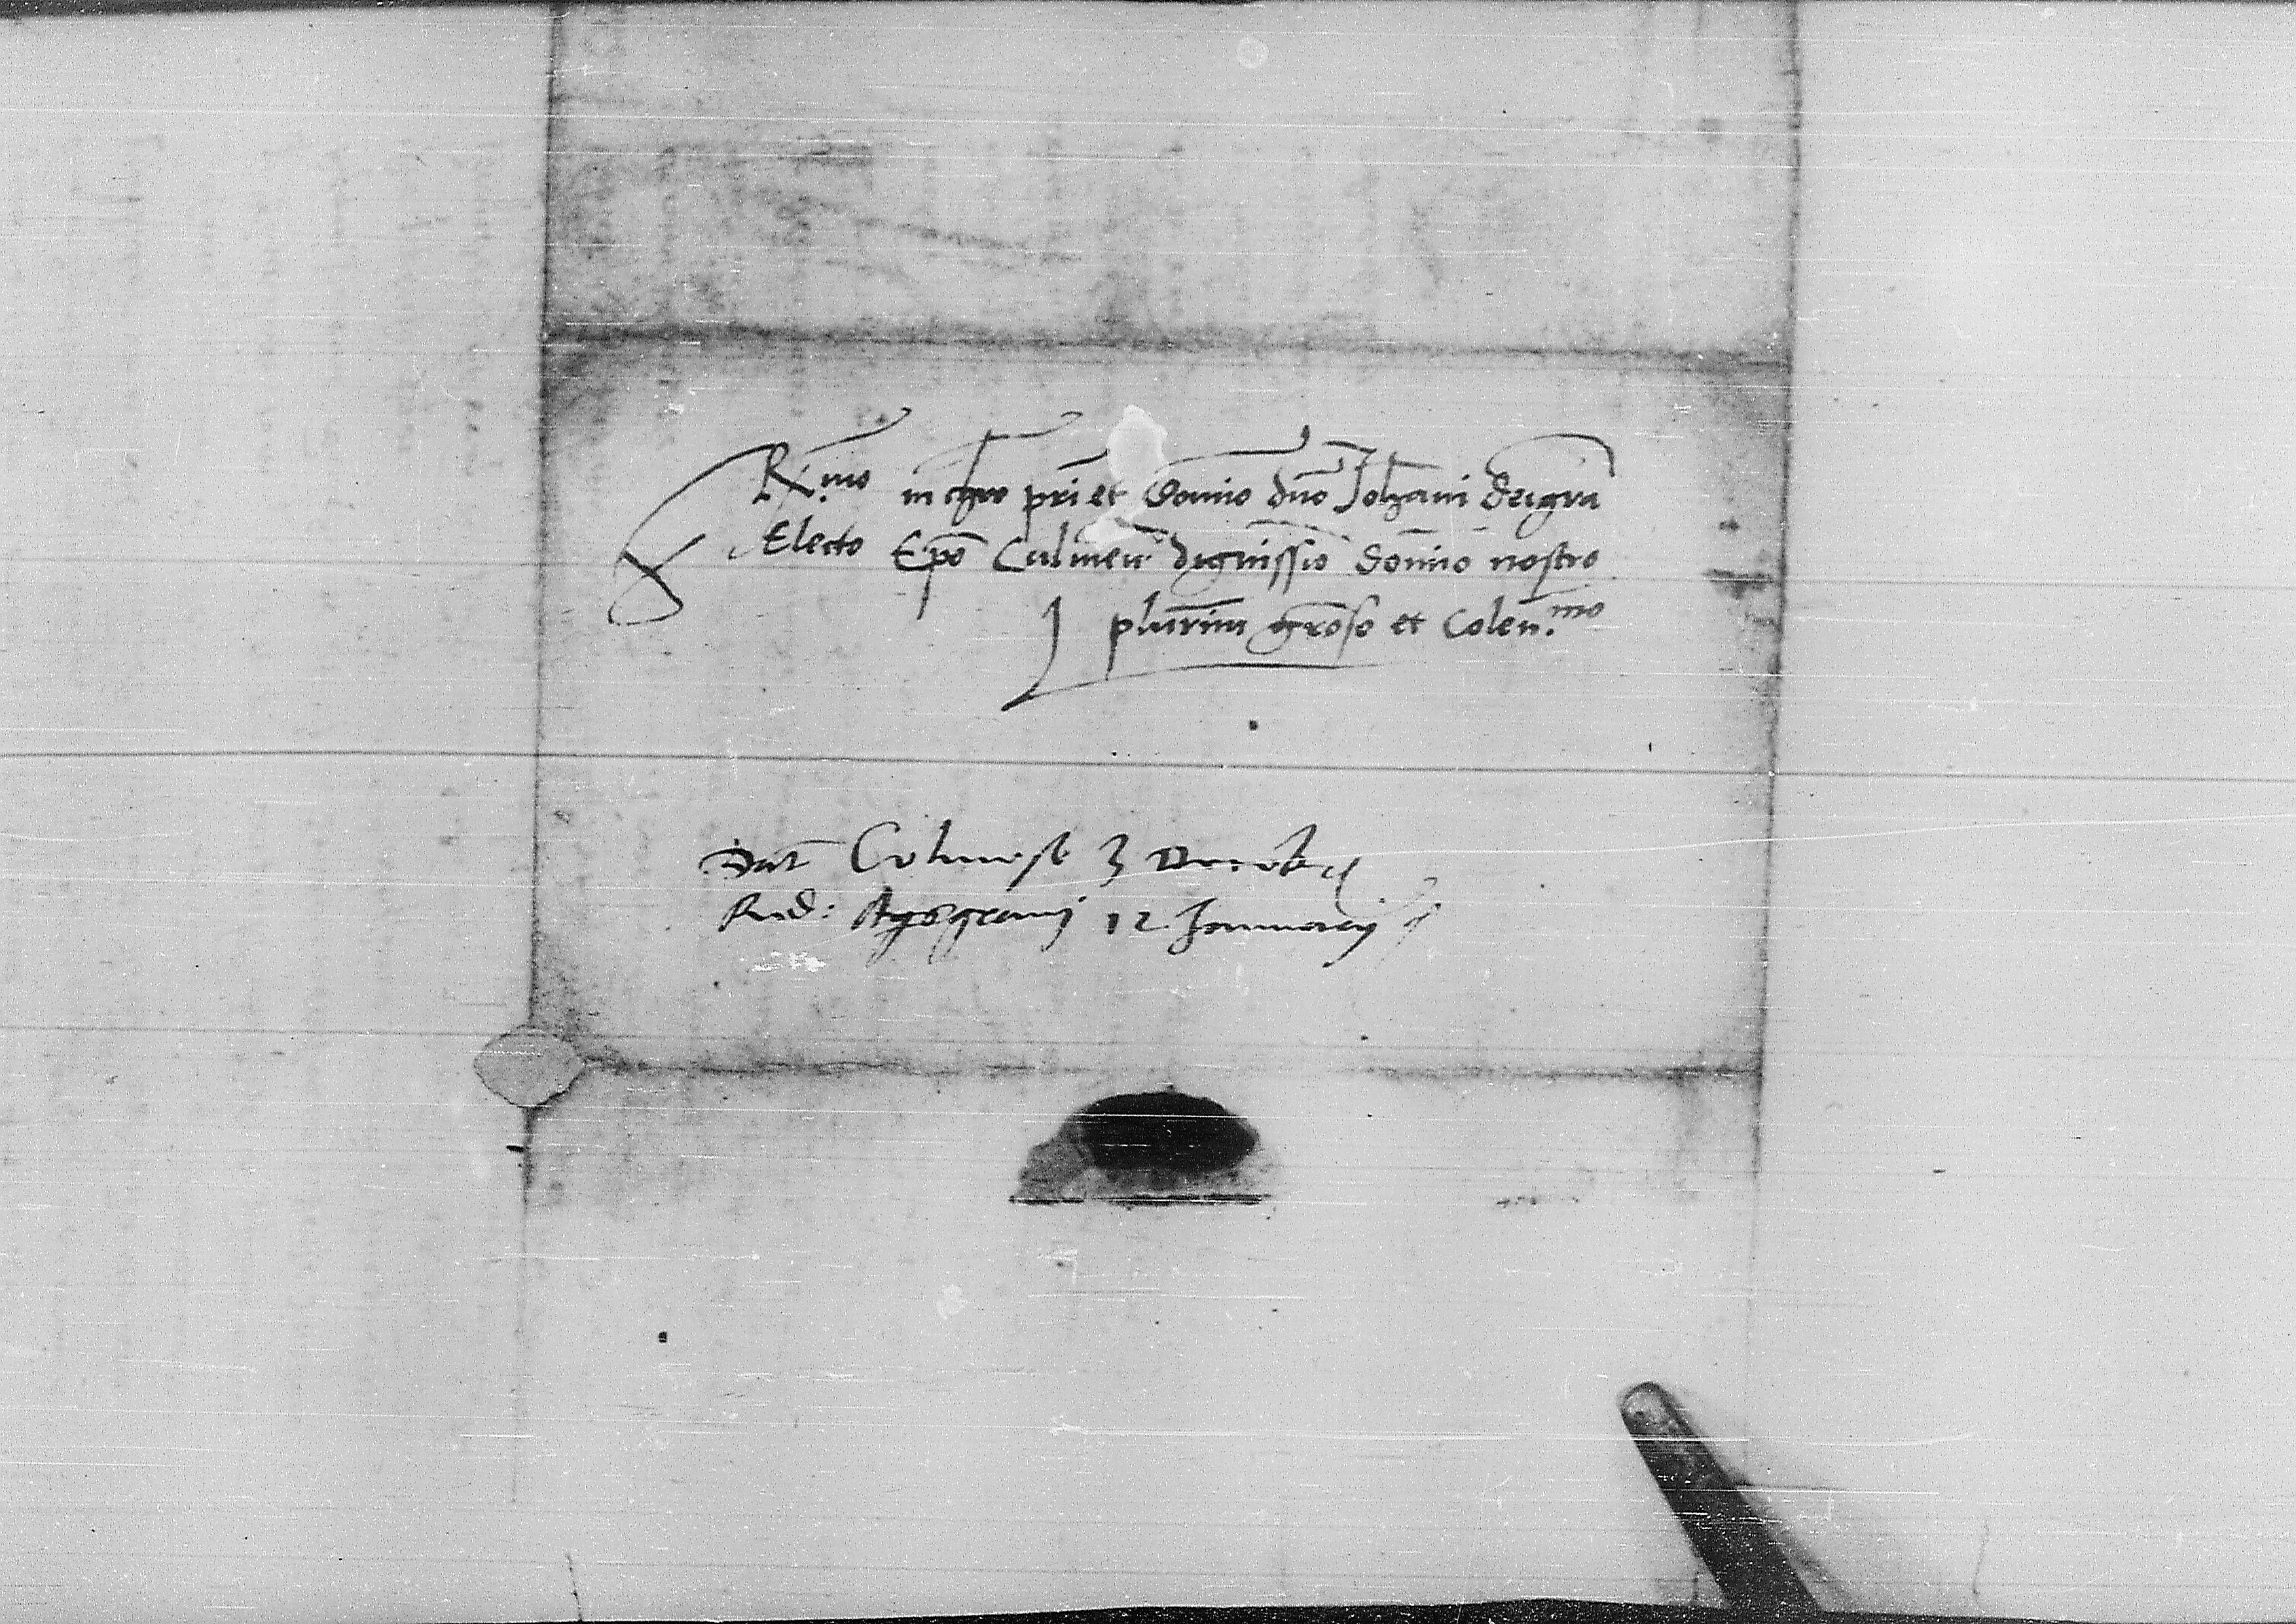 R.mo in chro pri et Domino dno Johanni dei gra
Electo Epo Culmen dignissio Domino nostro
plurimu groso et Colen.mo
Dat Culmese 3 Decembr
Red: 12 Januarij